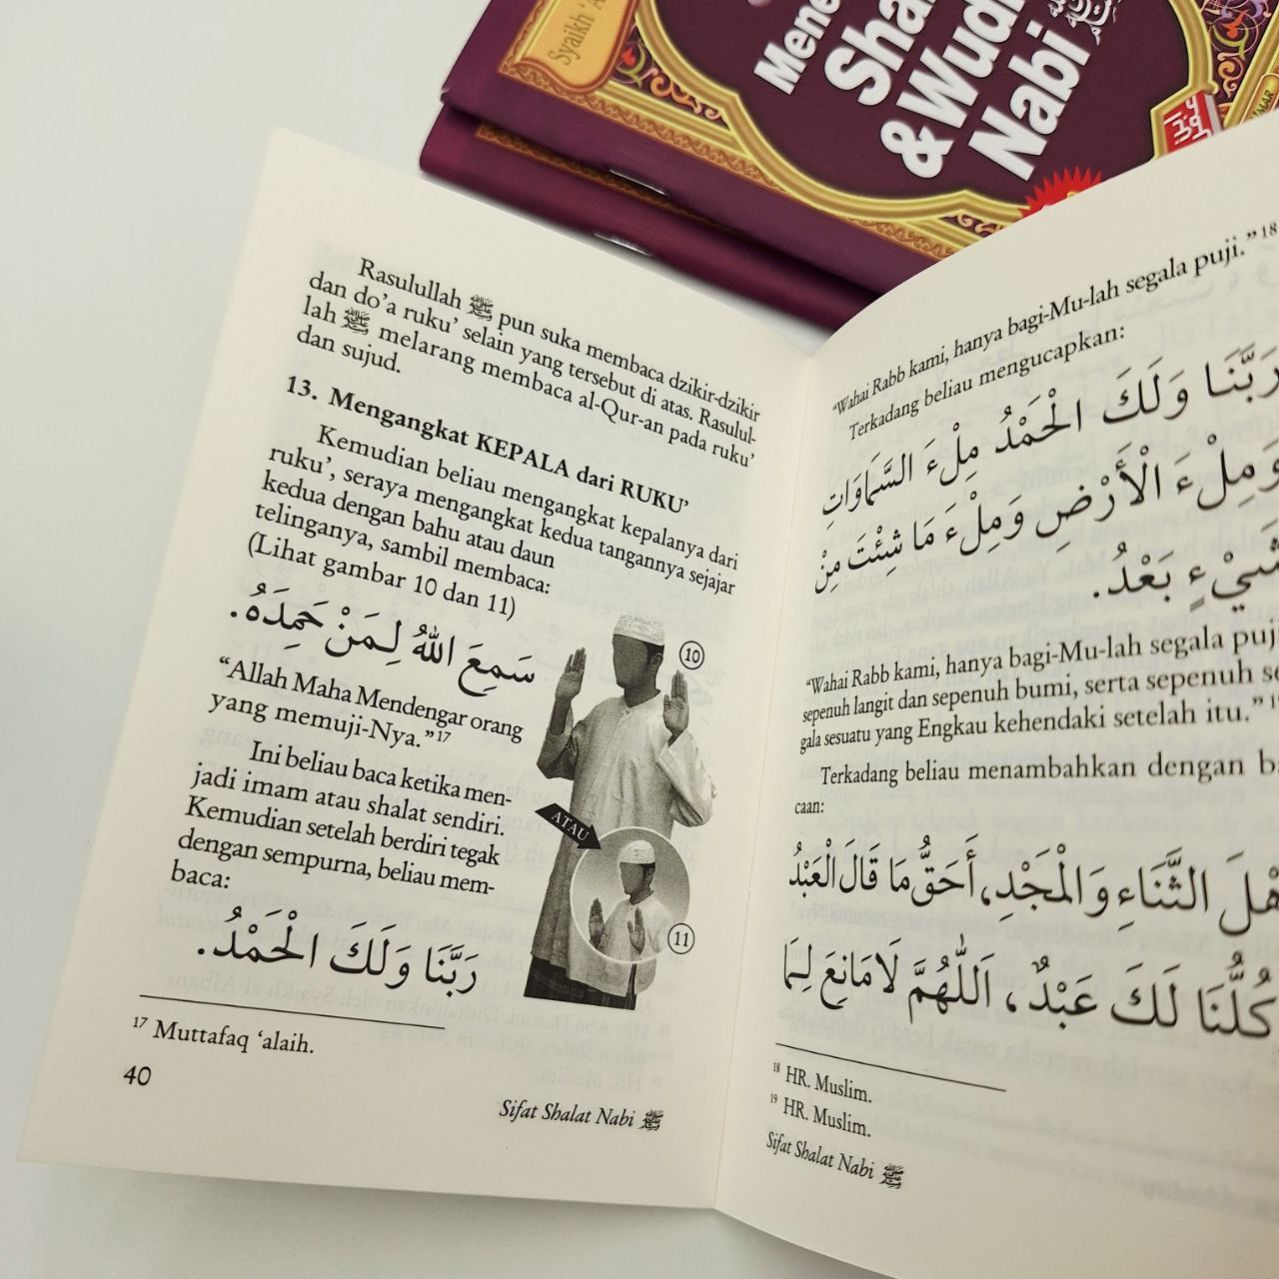 Syaikh 'A
Mene
Sha
& Wud
Nabi ﷺ
MAR
Rasulullah ﷺ pun suka membaca dzikir-dzikir
dan do'a ruku' selain yang tersebut di atas. Rasulul-
lah ﷺ melarang membaca al-Qur-an pada ruku'
dan sujud.
13. Mengangkat KEPALA dari RUKU'
Kemudian beliau mengangkat kepalanya dari
ruku', seraya mengangkat kedua tangannya sejajar
kedua dengan bahu atau daun
telinganya, sambil membaca:
(Lihat gambar 10 dan 11)
سَمِعَ اللهُ لِمَنْ حَمِدَهُ.
"Allah Maha Mendengar orang
yang memuji-Nya."17
Ini beliau baca ketika men-
jadi imam atau shalat sendiri.
Kemudian setelah berdiri tegak
dengan sempurna, beliau mem-
baca:
رَبَّنَا وَلَكَ الْحَمْدُ.
10
ATAU
11
17 Muttafaq 'alaih.
40
Sifat Shalat Nabi ﷺ
"Wahai Rabb kami, hanya bagi-Mu-lah segala puji."18
Terkadang beliau mengucapkan:
رَبَّنَا وَلَكَ الْحَمْدُ مِلْءَ السَّمَاوَاتِ
وَمِلْءَ الْأَرْضِ وَمِلْءَ مَا شِئْتَ مِنْ
شَيْءٍ بَعْدُ.
"Wahai Rabb kami, hanya bagi-Mu-lah segala puj
sepenuh langit dan sepenuh bumi, serta sepenuh se
gala sesuatu yang Engkau kehendaki setelah itu."
Terkadang beliau menambahkan dengan b
caan:
هْلَ الثَّنَاءِ وَالْمَجْدِ، أَحَقُّ مَا قَالَ الْعَبْدُ
كُلُّنَا لَكَ عَبْدٌ، اَللّٰهُمَّ لَا مَانِعَ لِمَا
18 HR. Muslim.
19 HR. Muslim.
Sifat Shalat Nabi ﷺ